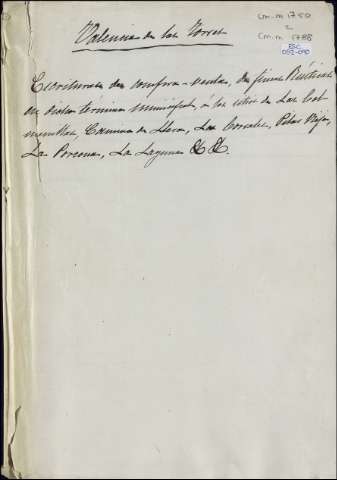 Valencia de las Torres
Cm.m 1750
a
Cm.m. 1788
ESC
052-090
Escrituras de compra-venta, de fincas Rústicas
en dicho termino municipal, á los sitios de Las
Camino de Llera, Los Corrales, Peñas Viejas,
La Porcona, La Laguna &. &.